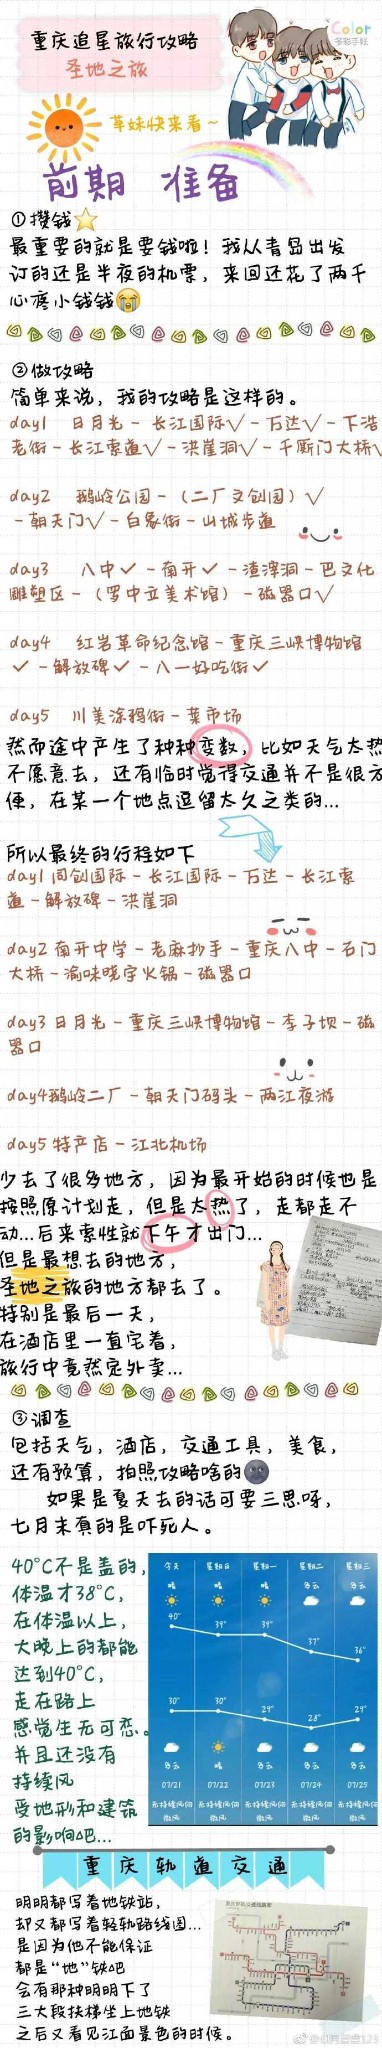 Color
多彩手帐
重庆追星旅行攻略
圣地之旅
草妹快来看~
前期 准备
①攒钱
最重要的就是要钱啦！我从青岛出发
订的还是半夜的机票，来回还花了两千
心疼小钱钱
②做攻略
简单来说，我的攻略是这样的。
day1 日月光-长江国际√-万达√-下浩
老街-长江索道√-洪崖洞√-千厮门大桥√
day2 鹅岭公园-（二厂文创园）√
-朝天门√-白象街-山城步道
day3 八中✓-南开✓-渣滓洞-巴文化
雕塑区-（罗中立美术馆）-磁器口√
day4 红岩革命纪念馆-重庆三峡博物馆
✓-解放碑✓-八一好吃街✓
day5 川美涂鸦街-菜市场
然而途中产生了种种变数，比如天气太热
不愿意去，还有临时觉得交通并不是很方
便，在某一个地点逗留太久之类的...
所以最终的行程如下
day1同创国际-长江国际-万达-长江索
道-解放碑-洪崖洞
day2南开中学-老麻抄手-重庆八中-石门
大桥-渝味晓宇火锅-磁器口
day3日月光-重庆三峡博物馆-李子坝-磁
器口
day4鹅岭二厂-朝天门码头-两江夜游
day5特产店-江北机场
少去了很多地方，因为最开始的时候也是
按照原计划走，但是太热了，走都走不
动...后来索性就下午才出门...
但是最想去的地方，
圣地之旅的地方都去了。
特别是最后一天，
在酒店里一直宅着，
旅行中竟然定外卖...
③调查
包括天气，酒店，交通工具，美食，
还有预算，拍照攻略啥的
如果是夏天去的话可要三思呀，
七月末真的是吓死人。
40°C不是盖的，
体温才38°C，
在体温以上，
大晚上的都能
达到40°C，
走在路上
感觉生无可恋。
并且还没有
持续风
受地形和建筑
的影响吧...
今天 星期日 星期一 星期二 星期三
晴 晴 晴 多云 多云
40° 39° 39° 37° 36°
30° 30° 29° 28° 29°
多云 晴 多云 多云 多云
07/21 07/22 07/23 07/24 07/25
无持续风向 无持续风向 无持续风向 无持续风向 无持续风向
微风 微风 微风 微风 微风
重庆轨道交通
明明都写着地铁站，
却又都写着轻轨路线图...
是因为他不能保证
都是“地”铁吧
会有那种明明下了
三大段扶梯坐上地铁
之后又看见江面景色的时候。